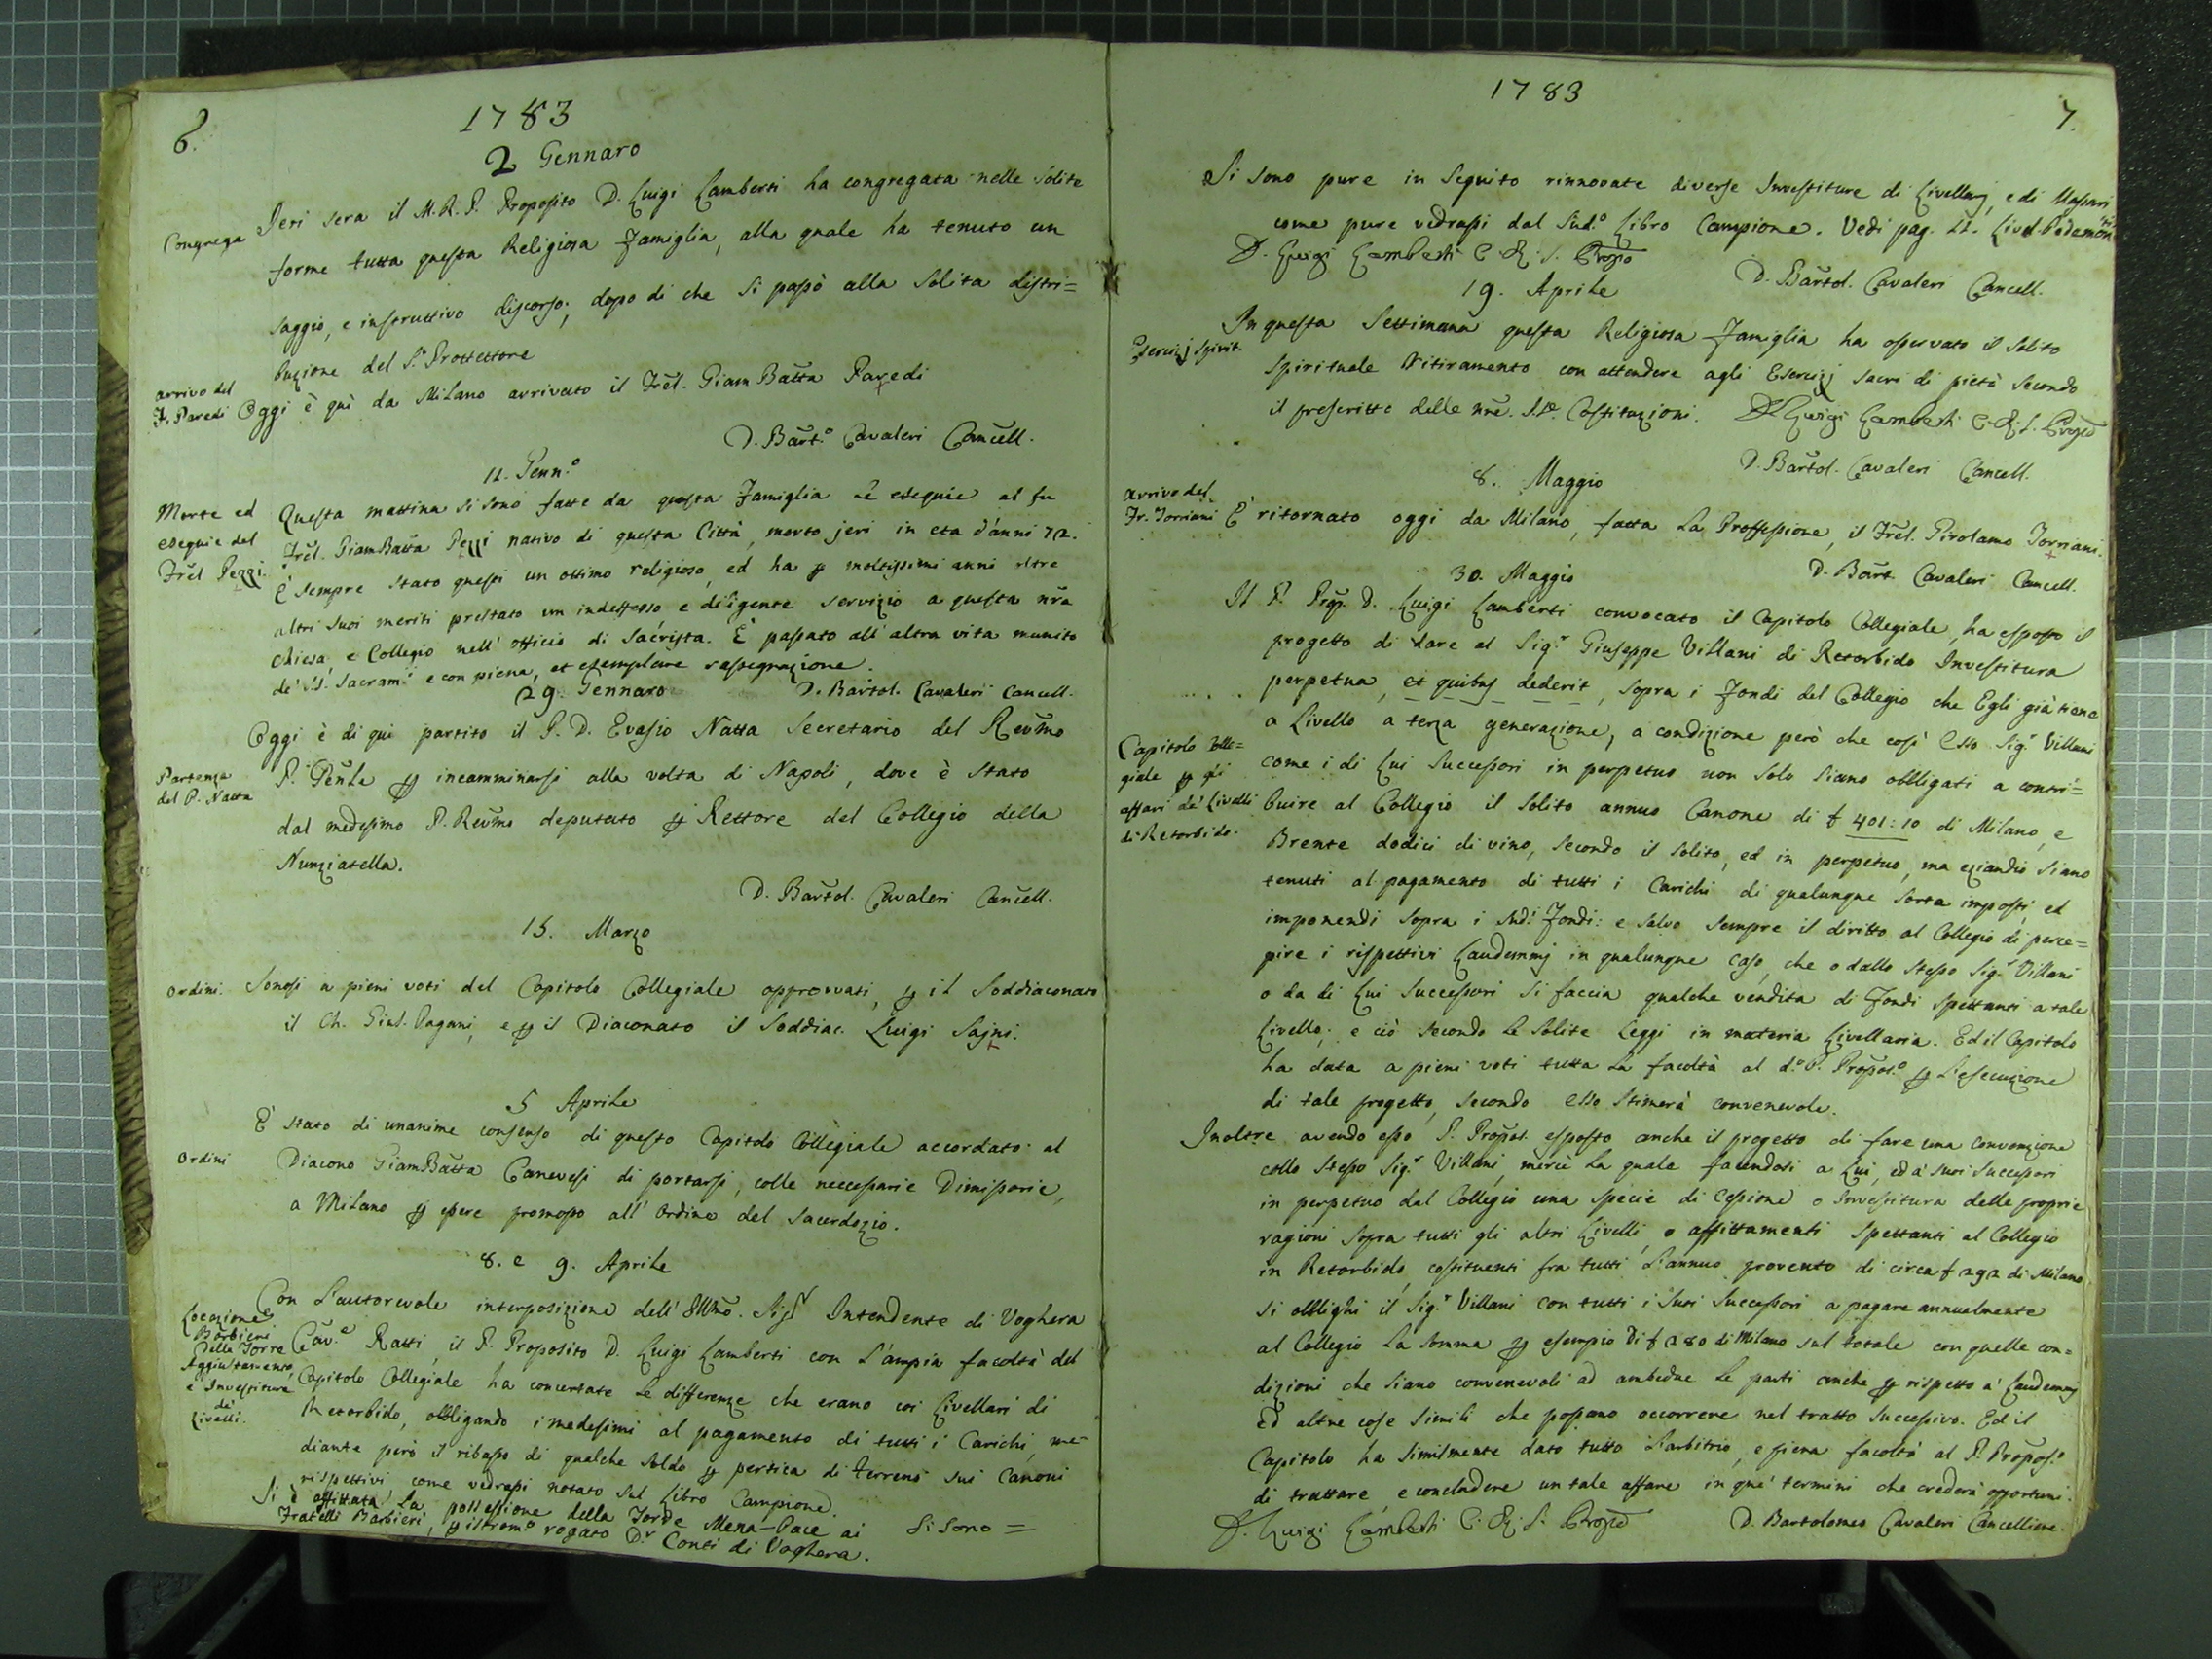 6.
1783
2 Gennaro
Congrega
Jeri sera il M. R. P. Proposito D. Luigi Lamberti ha congregata nelle solite
forme tutta questa Religiosa Famiglia, alla quale ha tenuto un
saggio, e instruttivo discorso; dopo di che si passò alla solita distri=
buzione del S. Prottettore
arrivo del
F. Paredi
Oggi è quì da Milano arrivato il Frēl. Giam Batta Paredi
D. Bart.º Cavaleri Cancell.
11. Genn.º
Morte ed
esequie del
Frēl Pezzi.
Questa mattina si sono fatte da questa Famiglia le esequie al fu
Frēl. GiamBatta Pezzi nativo di questa Città, morto jeri in eta d'anni 72.
È sempre stato questi un ottimo religioso, ed ha p moltissimi anni oltre
altri suoi meriti prestato un indeffesso e diligente servizio a questa nrā
chiesa, e Collegio nell' officio di Sacrista. È passato all' altra vita munito
de' SS. Sacram.i e con piena, et exemplare rassegnazione.
29. Gennaro
D. Bartol. Cavaleri Cancell.
Partenza
del P. Natta
Oggi è di quì partito il P. D. Evasio Natta Secretario del Revm̃o
P. Gēnle p incamminarsi alla volta di Napoli, dove è stato
dal medesimo P. Revm̃o deputato p Rettore del Collegio della
Nunziatella.
D. Bartol. Cavaleri Cancell.
15. Marzo
Ordini.
Sonosi a pieni voti del Capitolo Collegiale approvvati, p il Soddiaconato
il Ch. Gius. Pagani, e p il Diaconato il Soddiac. Luigi Sagni.
5 Aprile
Ordini
È stato di unanime consenso di questo Capitolo Collegiale accordato al
Diacono GiamBatta Canevesi di portarsi, colle neccessarie Dimissorie,
a Milano p essere promosso all' Ordine del Sacerdozio.
8. e 9. Aprile
Locazione
Barbieri
della Torre
Aggiustamento,
e Investiture
de'
Livelli.
Con l'autorevole interposizione dell' Illm̃o. Sig.r Intendente di Voghera
Cav.e Ratti, il P. Proposito D. Luigi Lamberti con l'ampia facoltà del
Capitolo Collegiale ha concertate le differenze che erano coi Livellari di
Retorbido, obbligando i medesimi al pagamento di tutti i Carichi, me-
diante però il ribasso di qualche soldo p pertica di terreno sui Canoni
rispettivi come vedrassi notato sul Libro Campione.
Si è affittata la possessione della Torre Mena-Pace ai
Fratelli Barbieri, p istrom.º rogato D.r Conti di Voghera.
Si sono =
1783
7.
Si sono pure in seguito rinnovate diverse Investiture di Livellarj, e di Massari
come pure vedrassi dal Sud.º Libro Campione. Vedi pag. 11. Livel. Pedemon
D. Luigi Lamberti C. R. S. Propto
D. Bartol. Cavaleri Cancell.
19. Aprile
Esercizj Spirit.
In questa Settimana questa Religiosa Famiglia ha osservato il solito
spirituale Ritiramento con attendere agli Esercizj sacri di pietà secondo
il prescritto delle nrē. SSe. Costituzioni.
D. Luigi Lamberti C. R. S. Propto
D. Bartol. Cavaleri Cancell.
8. Maggio
arrivo del
Fr. Torriani
È ritornato oggi da Milano, fatta la Proffessione, il Frēl. Girolamo Torriani.
D. Bart. Cavaleri Cancell.
30. Maggio
Capitolo Colle=
giale p gli
affari de' Livelli
di Retorbido.
Il P. Prop. D. Luigi Lamberti convocato il Capitolo Collegiale, ha esposto il
progetto di dare al Sig.r Giuseppe Villani di Retorbido Investitura
perpetua, et quibus dederit, sopra i Fondi del Collegio che Egli già tiene
a Livello a terza generazione, a condizione però che così Esso Sig.r Villani
come i di Lui Successori in perpetuo non solo siano obbligati a contri=
buire al Collegio il solito annuo Canone di £ 401:10 di Milano, e
Brente dodici di vino, secondo il solito, ed in perpetuo, ma eziandio siano
tenuti al pagamento di tutti i Carichi di qualunque sorta imposti, ed
imponendi sopra i sud.i Fondi: e salvo sempre il diritto al Collegio di perce=
pire i rispettivi Laudemmj in qualunque caso, che o dallo stesso Sig.r Villani
o da di Lui Successori si faccia qualche vendita di Fondi spettanti a tale
Livello; e ciò secondo le solite Leggi in materia Livellaria. Ed il Capitolo
ha data a pieni voti tutta la facoltà al d.º P. Propos.º p l'esecuzione
di tale progetto, secondo Esso stimerà convenevole.
Inoltre avendo esso P. Propos. esposto anche il progetto di fare una convenzione
collo stesso Sig.r Villani, mercè la quale facendosi a Lui, ed a' suoi Successori
in perpetuo dal Collegio una specie di Cessione o Investitura delle proprie
ragioni sopra tutti gli altri Livelli, o affittamenti spettanti al Collegio
in Retorbido, costituenti fra tutti l'annuo provento di circa £ 292 di Milano
si obblighi il Sig.r Villani con tutti i suoi Successori a pagare annualmente
al Collegio la somma p esempio di £ 280 di Milano sul totale con quelle con=
dizioni che siano convenevoli ad ambedue le parti anche p rispetto a' Laudemmj
ed altre cose simili che possano occorrere nel tratto successivo. Ed il
Capitolo ha similmente dato tutto l'arbitrio, e piena facoltà al P. Propos.º
di trattare, e concludere un tale affare in que' termini che crederà opportuni.
D. Luigi Lamberti C. R. S. Propto
D. Bartolomeo Cavaleri Cancelliere.